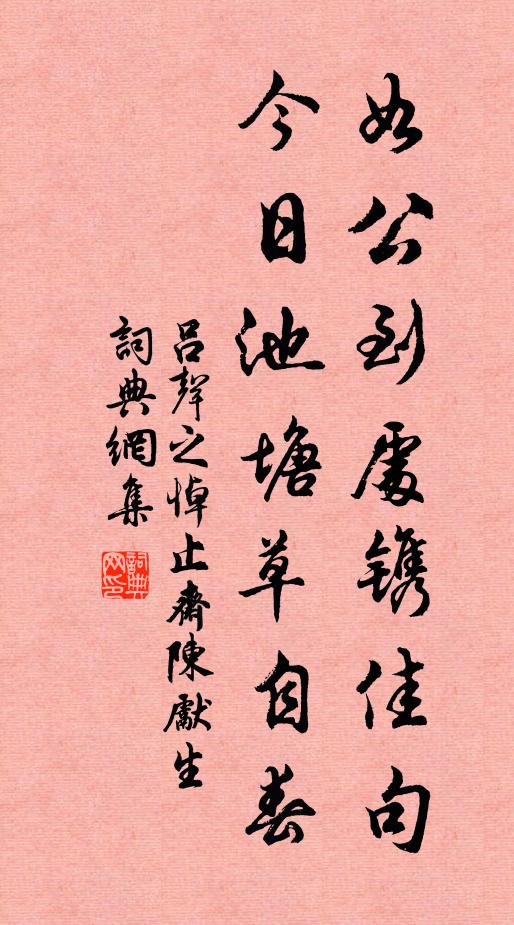 如公到處鐫佳句
今日池塘草自春
呂聲之悼止齋陳獻生
詞典網集
詞典網印